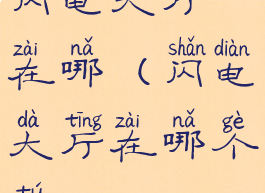 闪电大厅
zài nǎ shǎn diàn
在哪（闪电
dà tīng zài nǎ gè
大厅在哪个